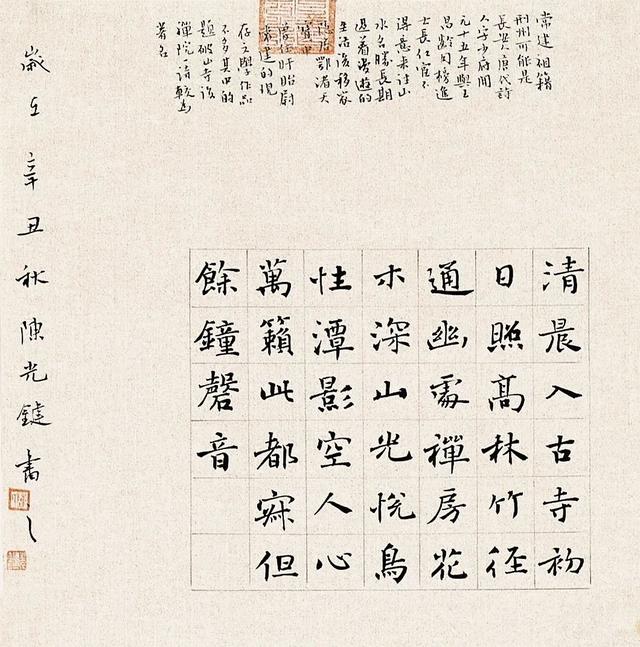 常建祖籍
邢州可能是
長安人唐代詩
人字少府開
元十五年與王
昌齡同榜進
士長仕宦不
得意来往山
水名勝長期
過着漫遊的
生活後移家
隱居鄂渚天
寶中
曾任盱眙尉
常建的現
存文學作品
不多其中的
題破山寺後
禪院一詩較為
著名
清晨入古寺初
日照髙林竹径
通幽處禪房花
木深山光悅鳥
性潭影空人心
萬籟此都寂但
餘鐘磬音
歲在辛丑秋陳光鍵書之